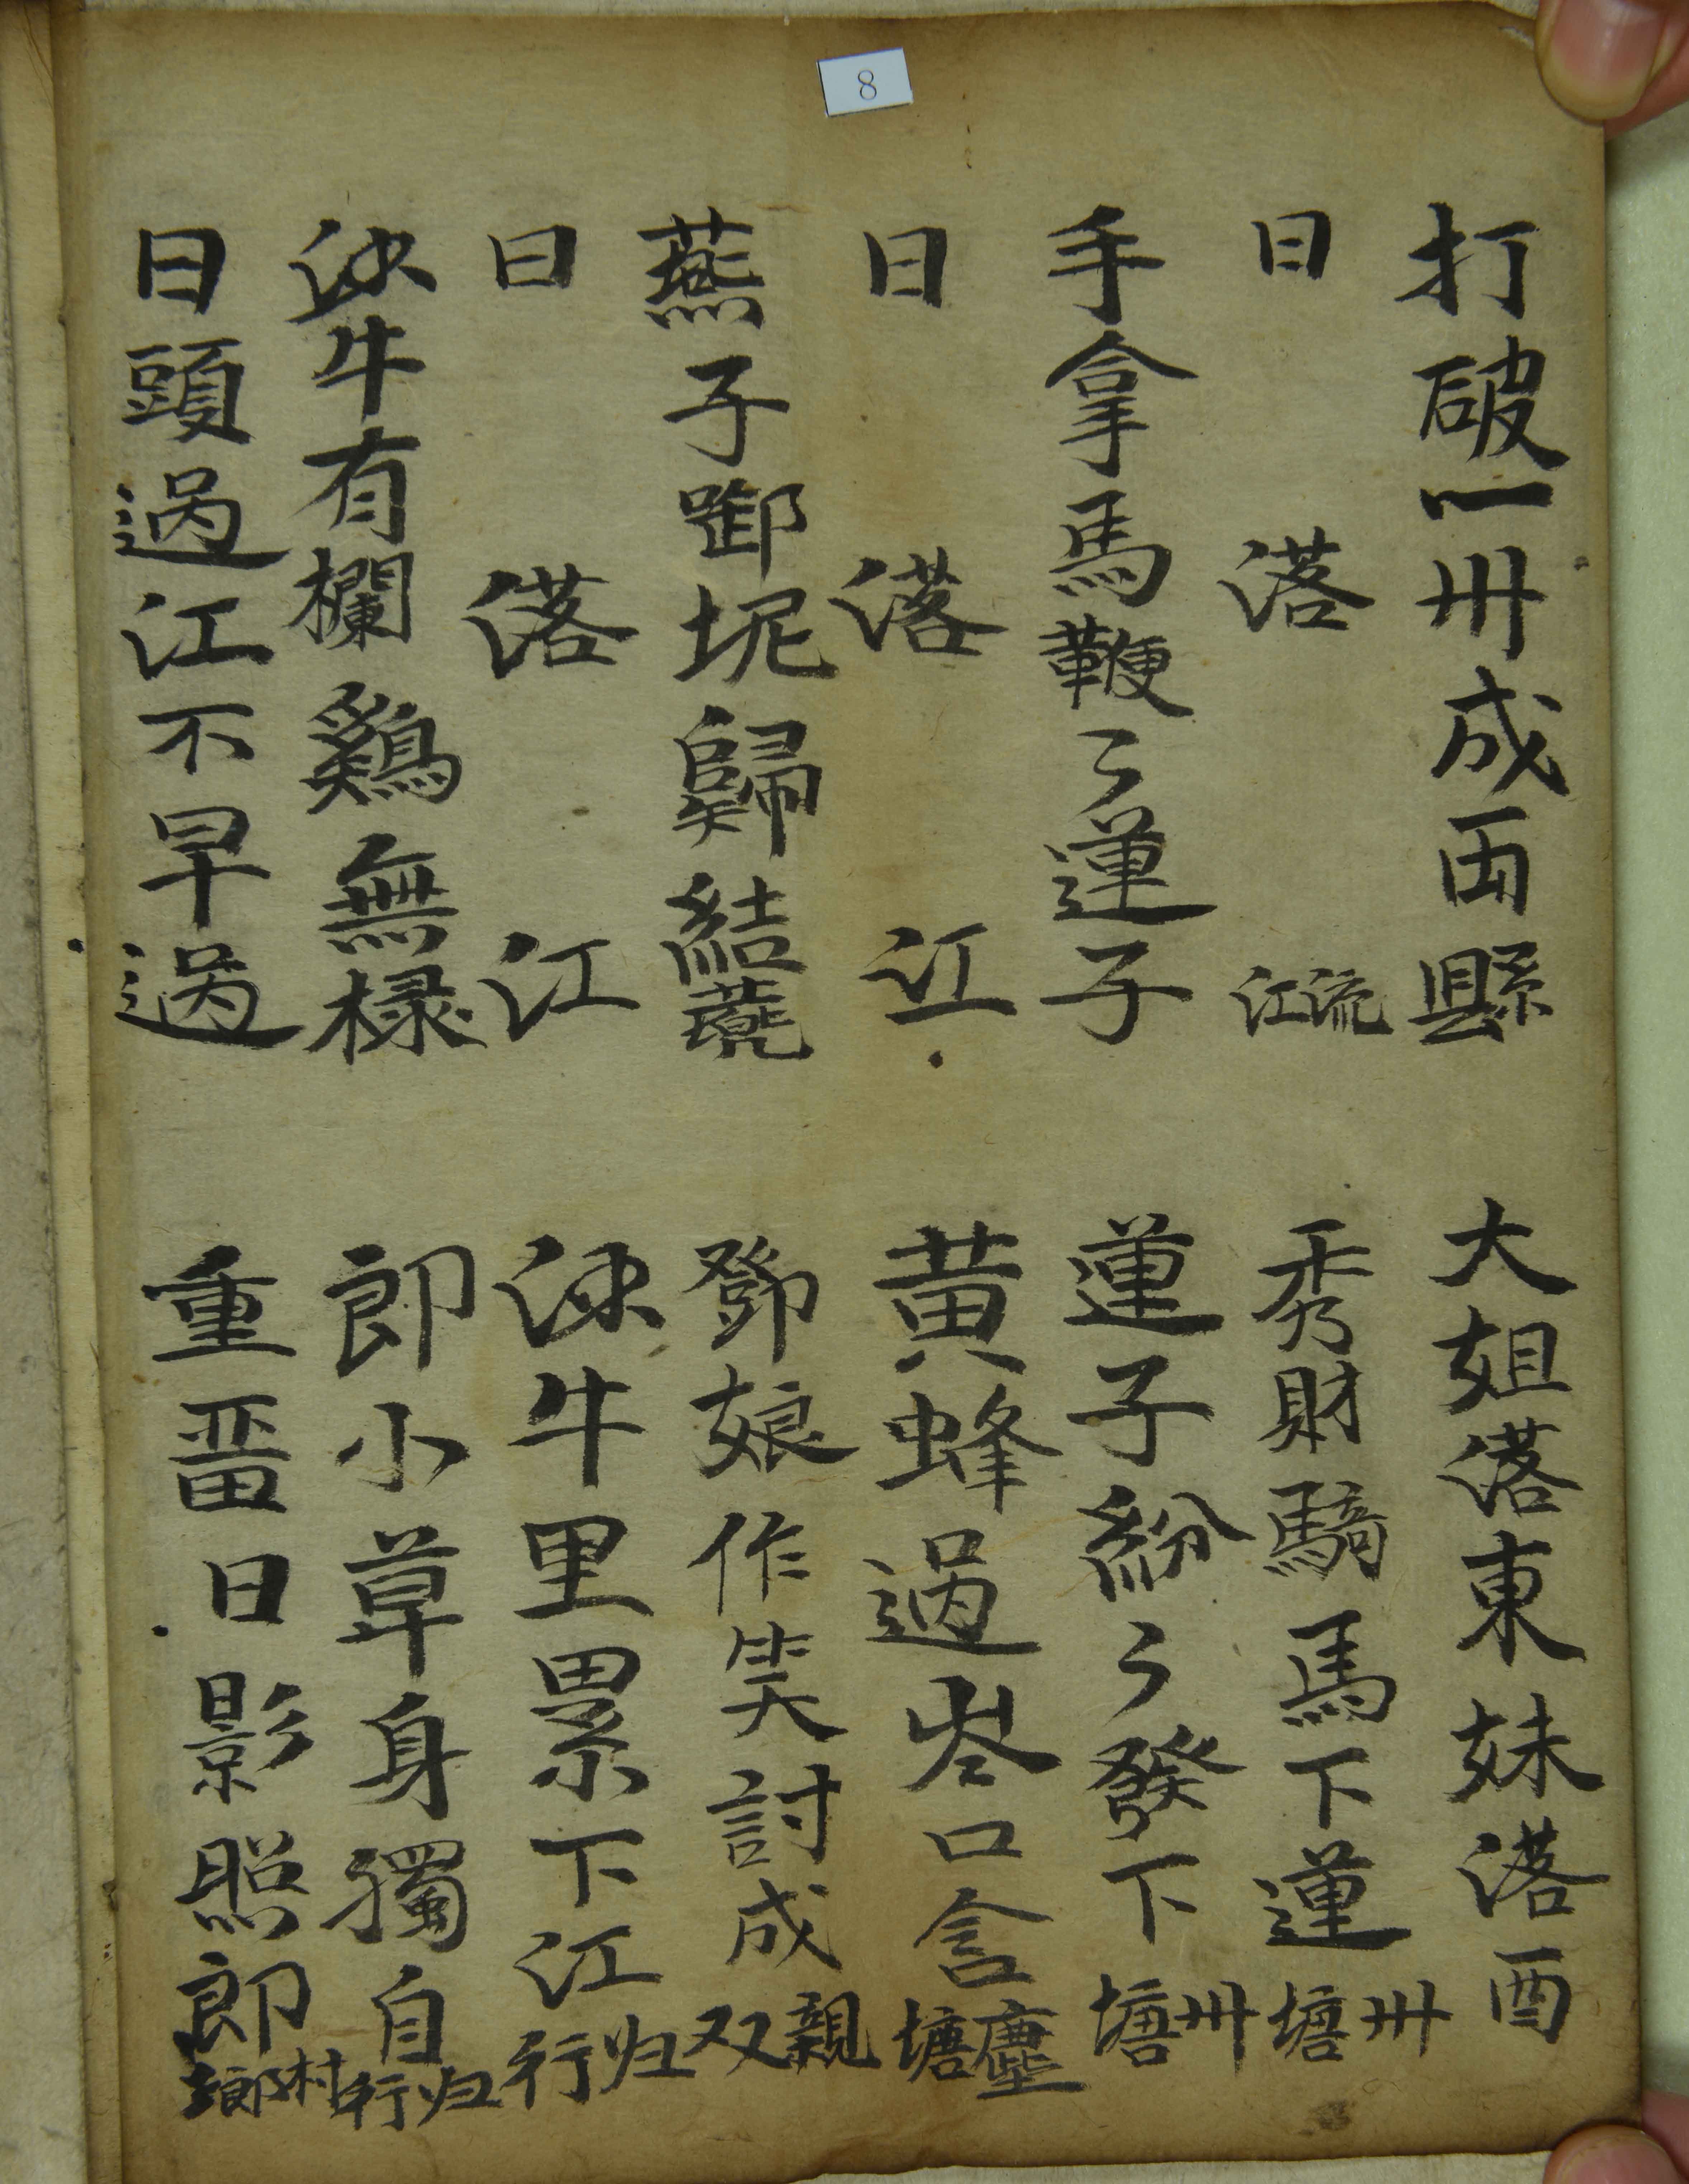 8
打破一卅成西縣
大姐落東妹落酉
日落江流
秀財騎馬下蓮塘卅
手拿馬鞭〻蓮子
蓮子紛〻發下塘卅
日落江
黃蜂過岺口含塘塵
燕子啣坭歸結
鄧娘作笑討成双親
日落江
牛里累下江行归
牛有欄鷄無椂
郎小草身獨自行归
日頭過江不早過
重啚日影照郎村